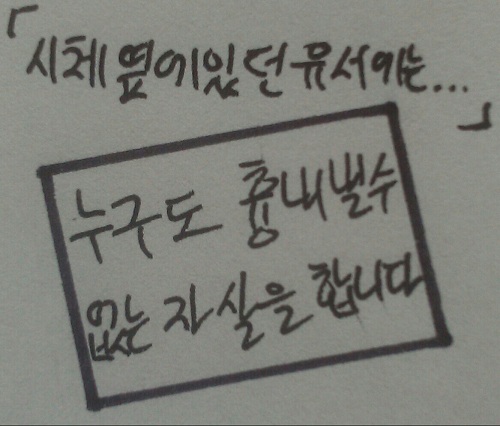 「시체 옆에있던 유서에는...」
누구도 흉내낼수
없는 자살을 합니다